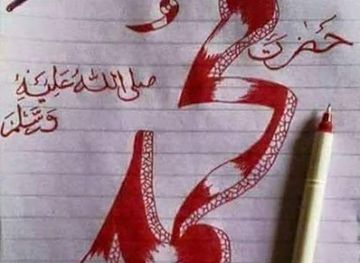 حضرت
محمد
صلى الله عليه
وسلم